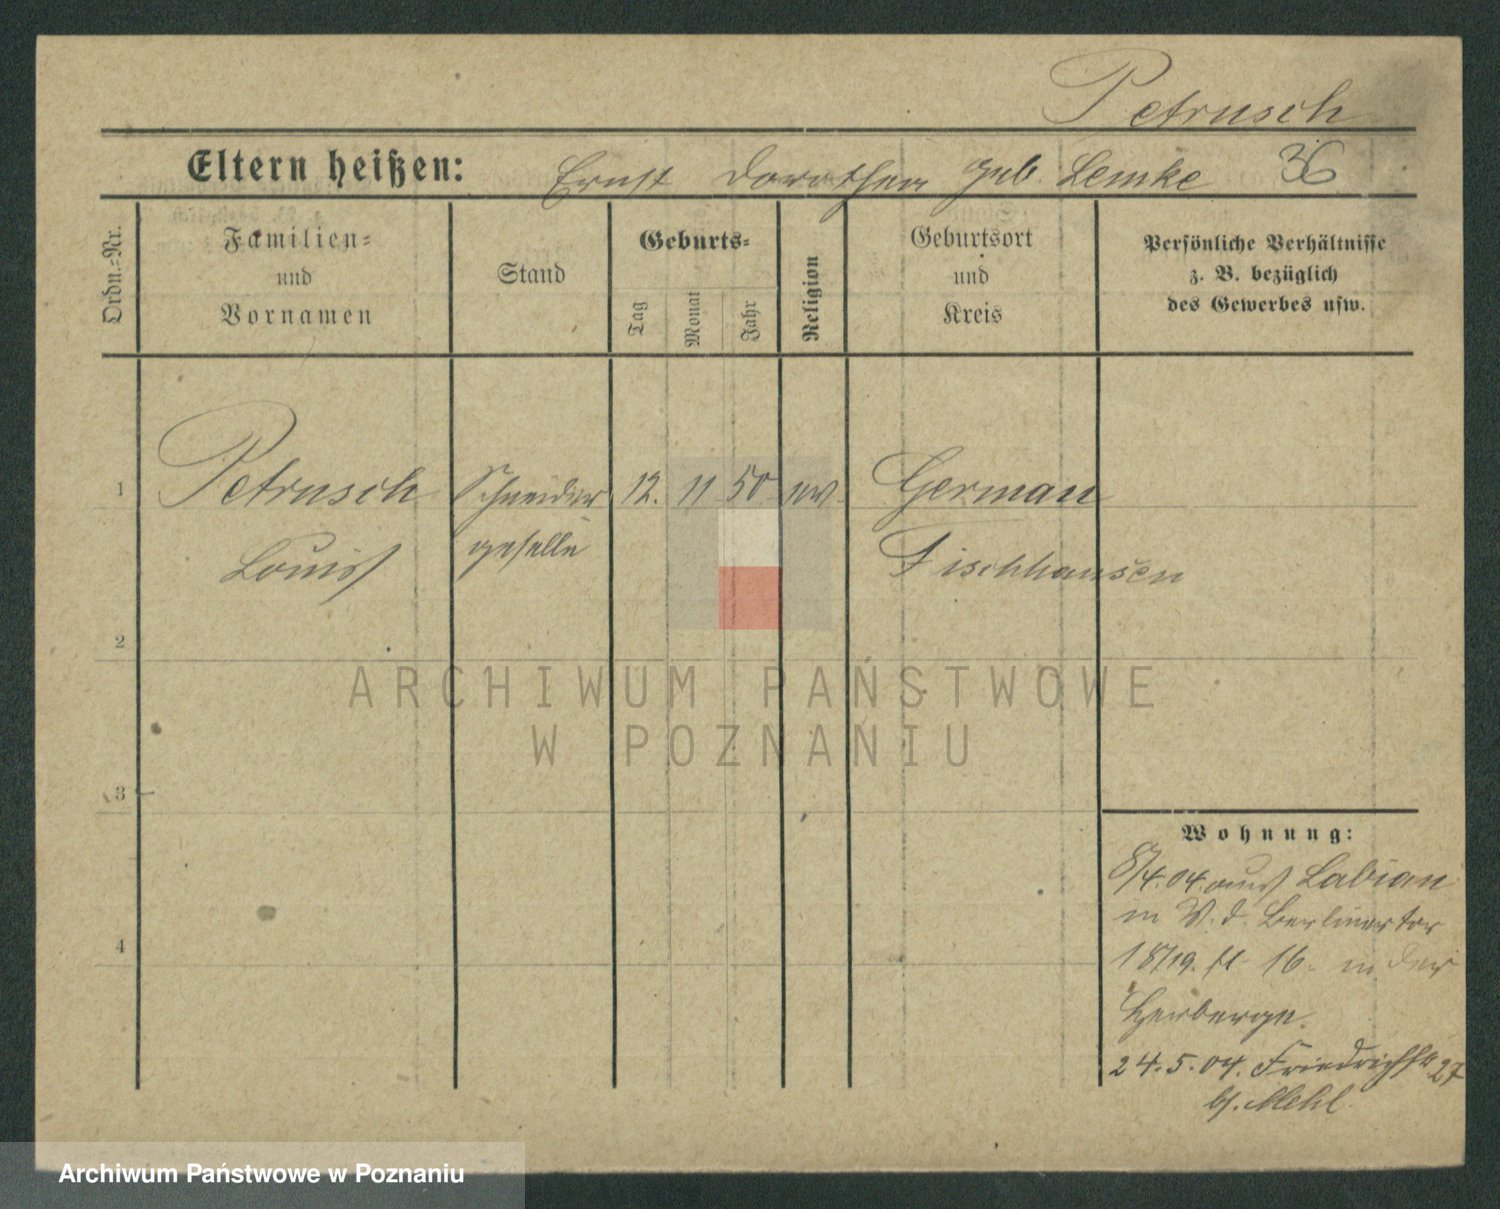 Petrusch
Eltern heißen: Ernst Dorothea geb. Lemke 36
Ordn.-Nr.
Familien-
und
Vornamen
Stand
Geburts-
Tag
Monat
Jahr
Religion
Geburtsort
und
Kreis
Persönliche Verhältnisse
z. B. bezüglich
des Gewerbes usw.
1 Petrusch Schneider 12. 11 50 ev German
Louis geselle Fischhausen
2
3
4
ARCHIWUM PAŃSTWOWE
W POZNANIU
Wohnung:
8/4.04. aus Labiau
in W. d. Berlinertor
18/19. 16. in der
Herberge.
24.5.04. Friedrichstr 27
b/. Mehl
Archiwum Państwowe w Poznaniu